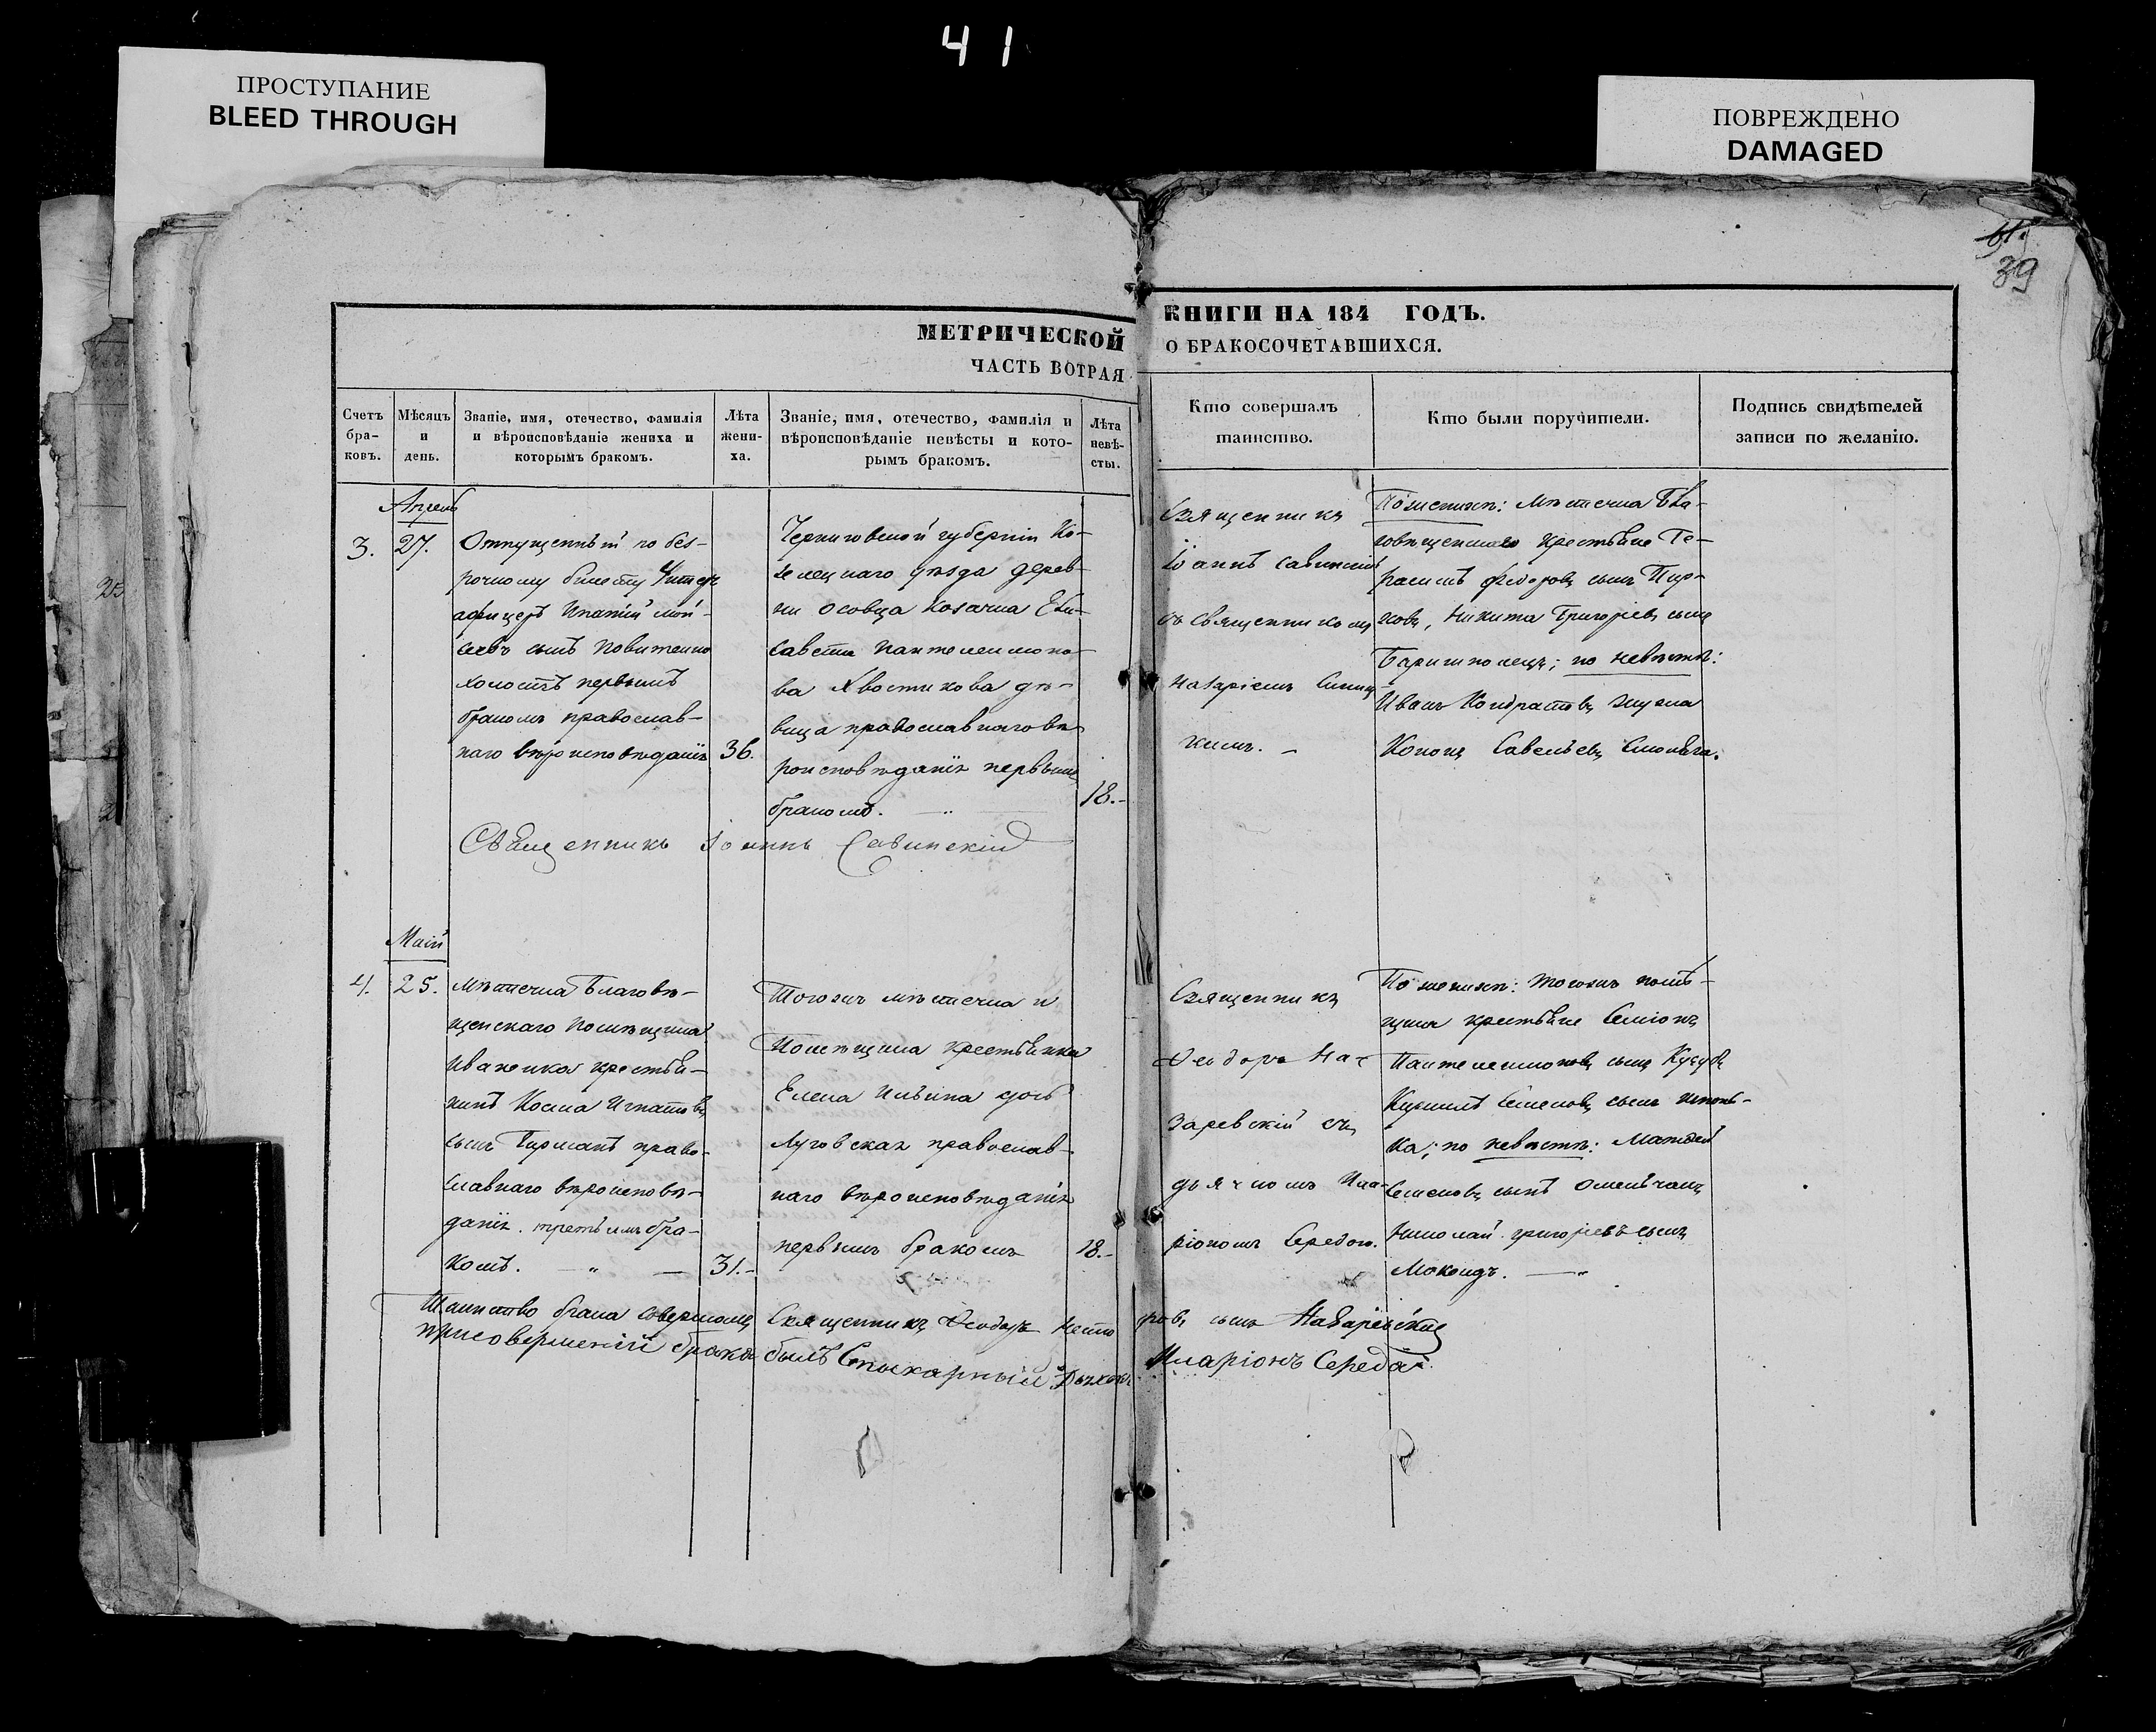 41
ПРОСТУПАНИЕ
BLEED THROUGH
ПОВРЕЖДЕНО
DAMAGED
39
МЕТРИЧЕСКОЙ
ЧАСТЬ ВОТРАЯ
КНИГИ НА 184 ГОДЪ.
О БРАКОСОЧЕТАВШИХСЯ.
Счетъ
бра-
ковъ.
Мѣсяцъ
и
день.
Званіе, имя, отечество, фамилія
и вѣроисповѣданіе жениха и
которымъ бракомъ.
Лѣта
жени-
ха.
Званіе, имя, отечество, фамилія и
вѣроисповѣданіе невѣсты и кото-
рымъ бракомъ.
Лѣта
невѣ-
сты.
Кто совершалъ
таинство.
Кто были поручители.
Подпись свидѣтелей
записи по желанію.
Апрель
3.
27.
Отпущенный по без-
рочному билету Унтер
афицеръ Игнатій Мой-
сеевъ сынъ
холостъ первымъ
бракомъ православ-
наго вѣроисповѣданія
36.
Черниговской губерніи Ко-
зелецкаго уѣзда дерев-
ни Осовца козачка Ели-
савета Пантелеимоно-
ва Хвостикова дѣ-
вица православнаго вѣ-
роисповѣданія первымъ
бракомъ.
18.-
Священникъ
Іоаннъ Савинскій
съ священникомъ
Назаріемъ
кимъ. -
По женихѣ: Мѣстечка Бла-
говѣщенскаго крестьяне Ге-
расимъ Федоровъ сынъ
Никита Григоріевъ сынъ
Баришполецъ; по невѣстѣ:
Иванъ Кондратовъ
Кононъ Савельевъ
Священникъ Іоаннъ Савинскій
Маій
4.
25.
Мѣстечка Благовѣ-
щенскаго помѣщика
Иваненка крестья-
нинъ Косма Игнатовъ
сынъ право-
славнаго вѣроисповѣ-
данія. третьимъ бра-
комъ. „ —
31.-
Тогожъ мѣстечка и
помѣщика крестьянка
Елена Ильина дочь
Луговская православ-
наго вѣроисповѣданія
первымъ бракомъ
18.-
Священникъ
Феодоръ На-
заревскій съ
дьячкомъ Ила-
ріономъ Середою.
По женихѣ: тогожъ помѣ-
щика крестьяне Симіонъ
Пантелеимоновъ сынъ
Кирилъ Семеновъ сынъ
ка; по невѣстѣ: Матвей
Семеновъ сынъ Омельчакъ
Николай григоріевъ сынъ
Мокоидъ. — „
Таинство брака совершалъ Священникъ Феодоръ Несто
ровъ сынъ Назаріевскій
присовершеній брака былъ Дьячокъ
Иларіонъ Середа